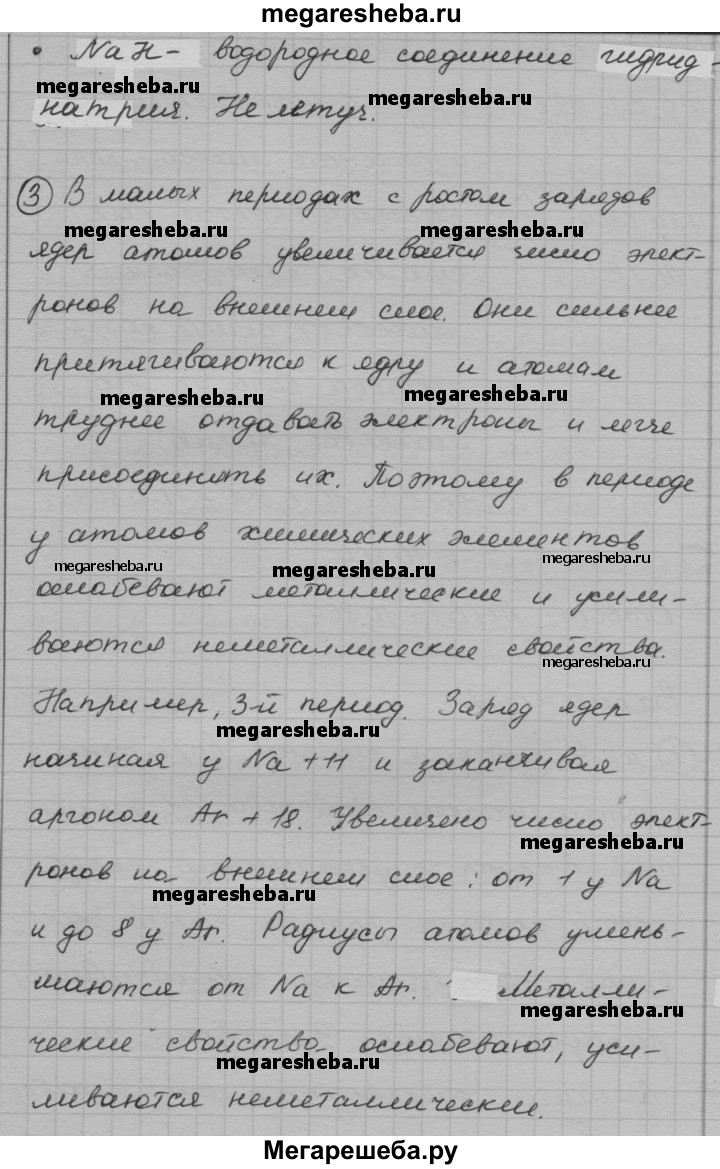 megaresheba.ru
• NaH - водородное соединение гидрид-
megaresheba.ru megaresheba.ru
натрия. Не летуч.
③ В малых периодах с ростом зарядов
megaresheba.ru megaresheba.ru
ядер атомов увеличивается число элект-
ронов на внешнем слое. Они сильнее
притягиваются к ядру и атомам
megaresheba.ru megaresheba.ru
труднее отдавать электроны и легче
присоединить их. Поэтому в периоде
у атомов химических элементов
megaresheba.ru megaresheba.ru megaresheba.ru
ослабевают металлические и усили-
ваются неметаллические свойства.
megaresheba.ru
Например, 3-й период. Заряд ядер
megaresheba.ru
начиная у Na +11 и заканчивая
аргоном Ar +18. Увеличено число элект-
megaresheba.ru
ронов на внешнем слое: от 1 у Na
megaresheba.ru
и до 8 у Ar. Радиусы атомов умень-
шаются от Na к Ar. Металли-
megaresheba.ru
ческие свойства ослабевают, уси-
megaresheba.ru
ливаются неметаллические.
Мегарешеба.ру